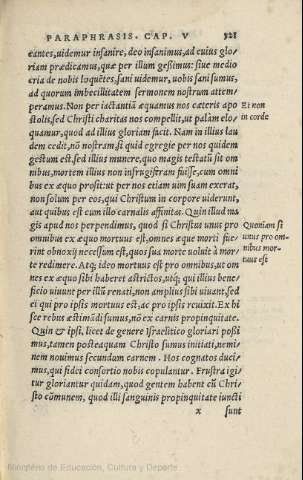 PARAPHRASIS. CAP. V 321
cantes, uidemur insanire, deo insanimus, ad cuius glo/
riam prædicamus, quæ per illum geßimus: siue medio
cria de nobis loquētes, sani uidemur, uobis sani sumus,
ad quorum imbecillitatem sermonem nostrum attem/
peramus. Non per iactantiā æquamus nos cæteris apo
stolis, sed Christi charitas nos compellit, ut palàm elo/
quamur, quod ad illius gloriam facit. Nam in illius lau
dem cedit, nō nostram, si quid egregie per nos quidem
gestum est, sed illius munere, quo magis testatū sit om
nibus, mortem illius non infrugiferam fuisse, cum omni
bus ex æquo prosit: ut per nos etiam uim suam exerat,
non solum per eos, qui Christum in corpore uiderunt,
aut quibus est cum illo carnalis affinitas. Quin illud ma
gis apud nos perpendimus, quod si Christus unus pro
omnibus ex æquo mortuus est, omnes æque morti fue/
rint obnoxij necessum est, quos sua morte uoluit à mor
te redimere. Atq; ideo mortuus est pro omnibus, ut om
nes ex æquo sibi haberet astrictos, utq; qui illius bene/
ficio uiuunt per illū renati, non amplius sibi uiuant, sed
ei qui pro ipsis mortuus est, ac pro ipsis reuixit. Ex hi
sce rebus æstimādi sumus, nō ex carnis propinquitate.
Quin & ipsi, licet de genere Israelitico gloriari poßi
mus, tamen posteaquam Christo sumus initiati, nemi/
nem nouimus secundum carnem. Hos cognatos duci/
mus, qui fidei consortio nobis copulantur. Frustra igi/
tur gloriantur quidam, quod gentem habent cū Chri/
sto cōmunem, quod illi sanguinis propinquitate iuncti
x sunt
Et non
in corde
Quoniam si
unus pro om-
nibus mor-
tuus est
Ministerio de Educación, Cultura y Deporte